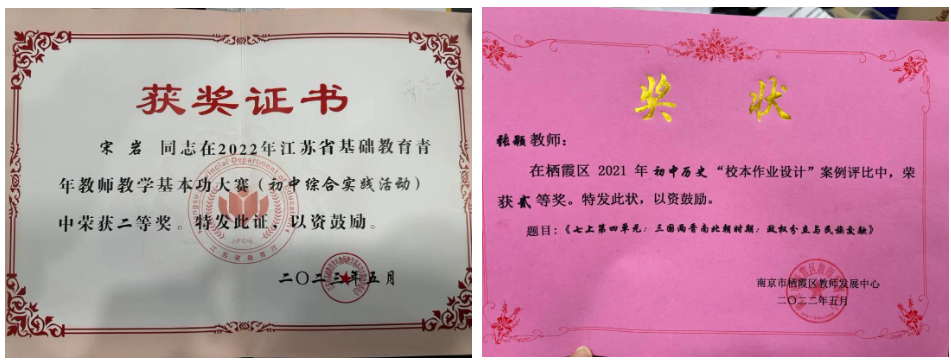 获奖证书
宋岩 同志在2022年江苏省基础教育青
年教师教学基本功大赛（初中综合实践活动）
中荣获二等奖。特发此证，以资鼓励。
江苏省教育厅
二〇二三年五月
奖 状
张颖教师：
在栖霞区 2021 年初中历史“校本作业设计”案例评比中，荣
获贰等奖。特发此状，以资鼓励。
题目：《七上第四单元：三国两晋南北朝时期：政权分立与民族交融》
南京市栖霞区教师发展中心
二〇二二年五月